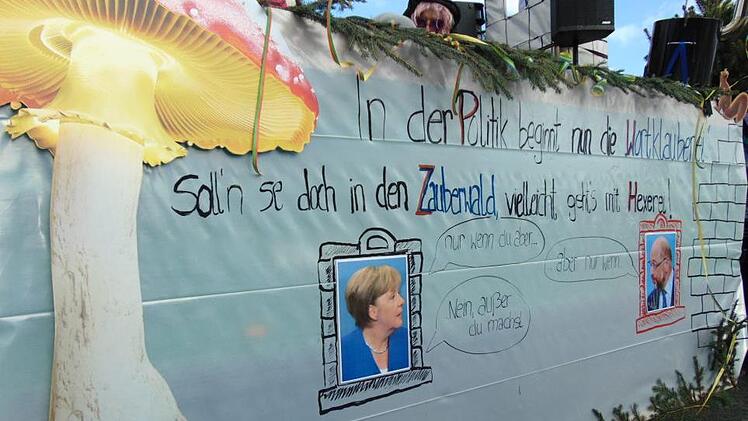 In der Politik beginnt nun die Wortklauberei
Soll'n se doch in den Zauberwald, vielleicht geht's mit Hexerei!
nur wenn du aber...
aber nur wenn...
Nein, außer
du machst